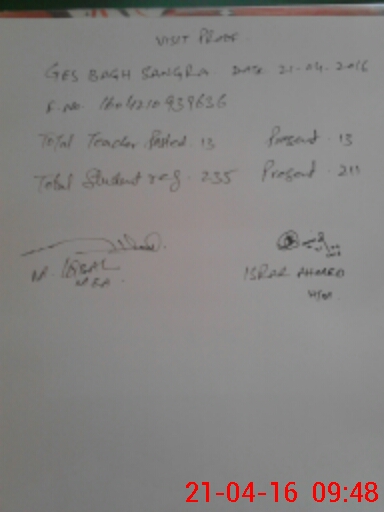 VISIT PROOF.
GES BAGH SANGRA. DATE 21-04-2016
F.NO. 1604210939636
Total Teacher Posted. 13 Present. 13
Total Student reg. 235 Present. 211
M. IQBAL ISRAR AHMED
MEA.
21-04-16 09:48